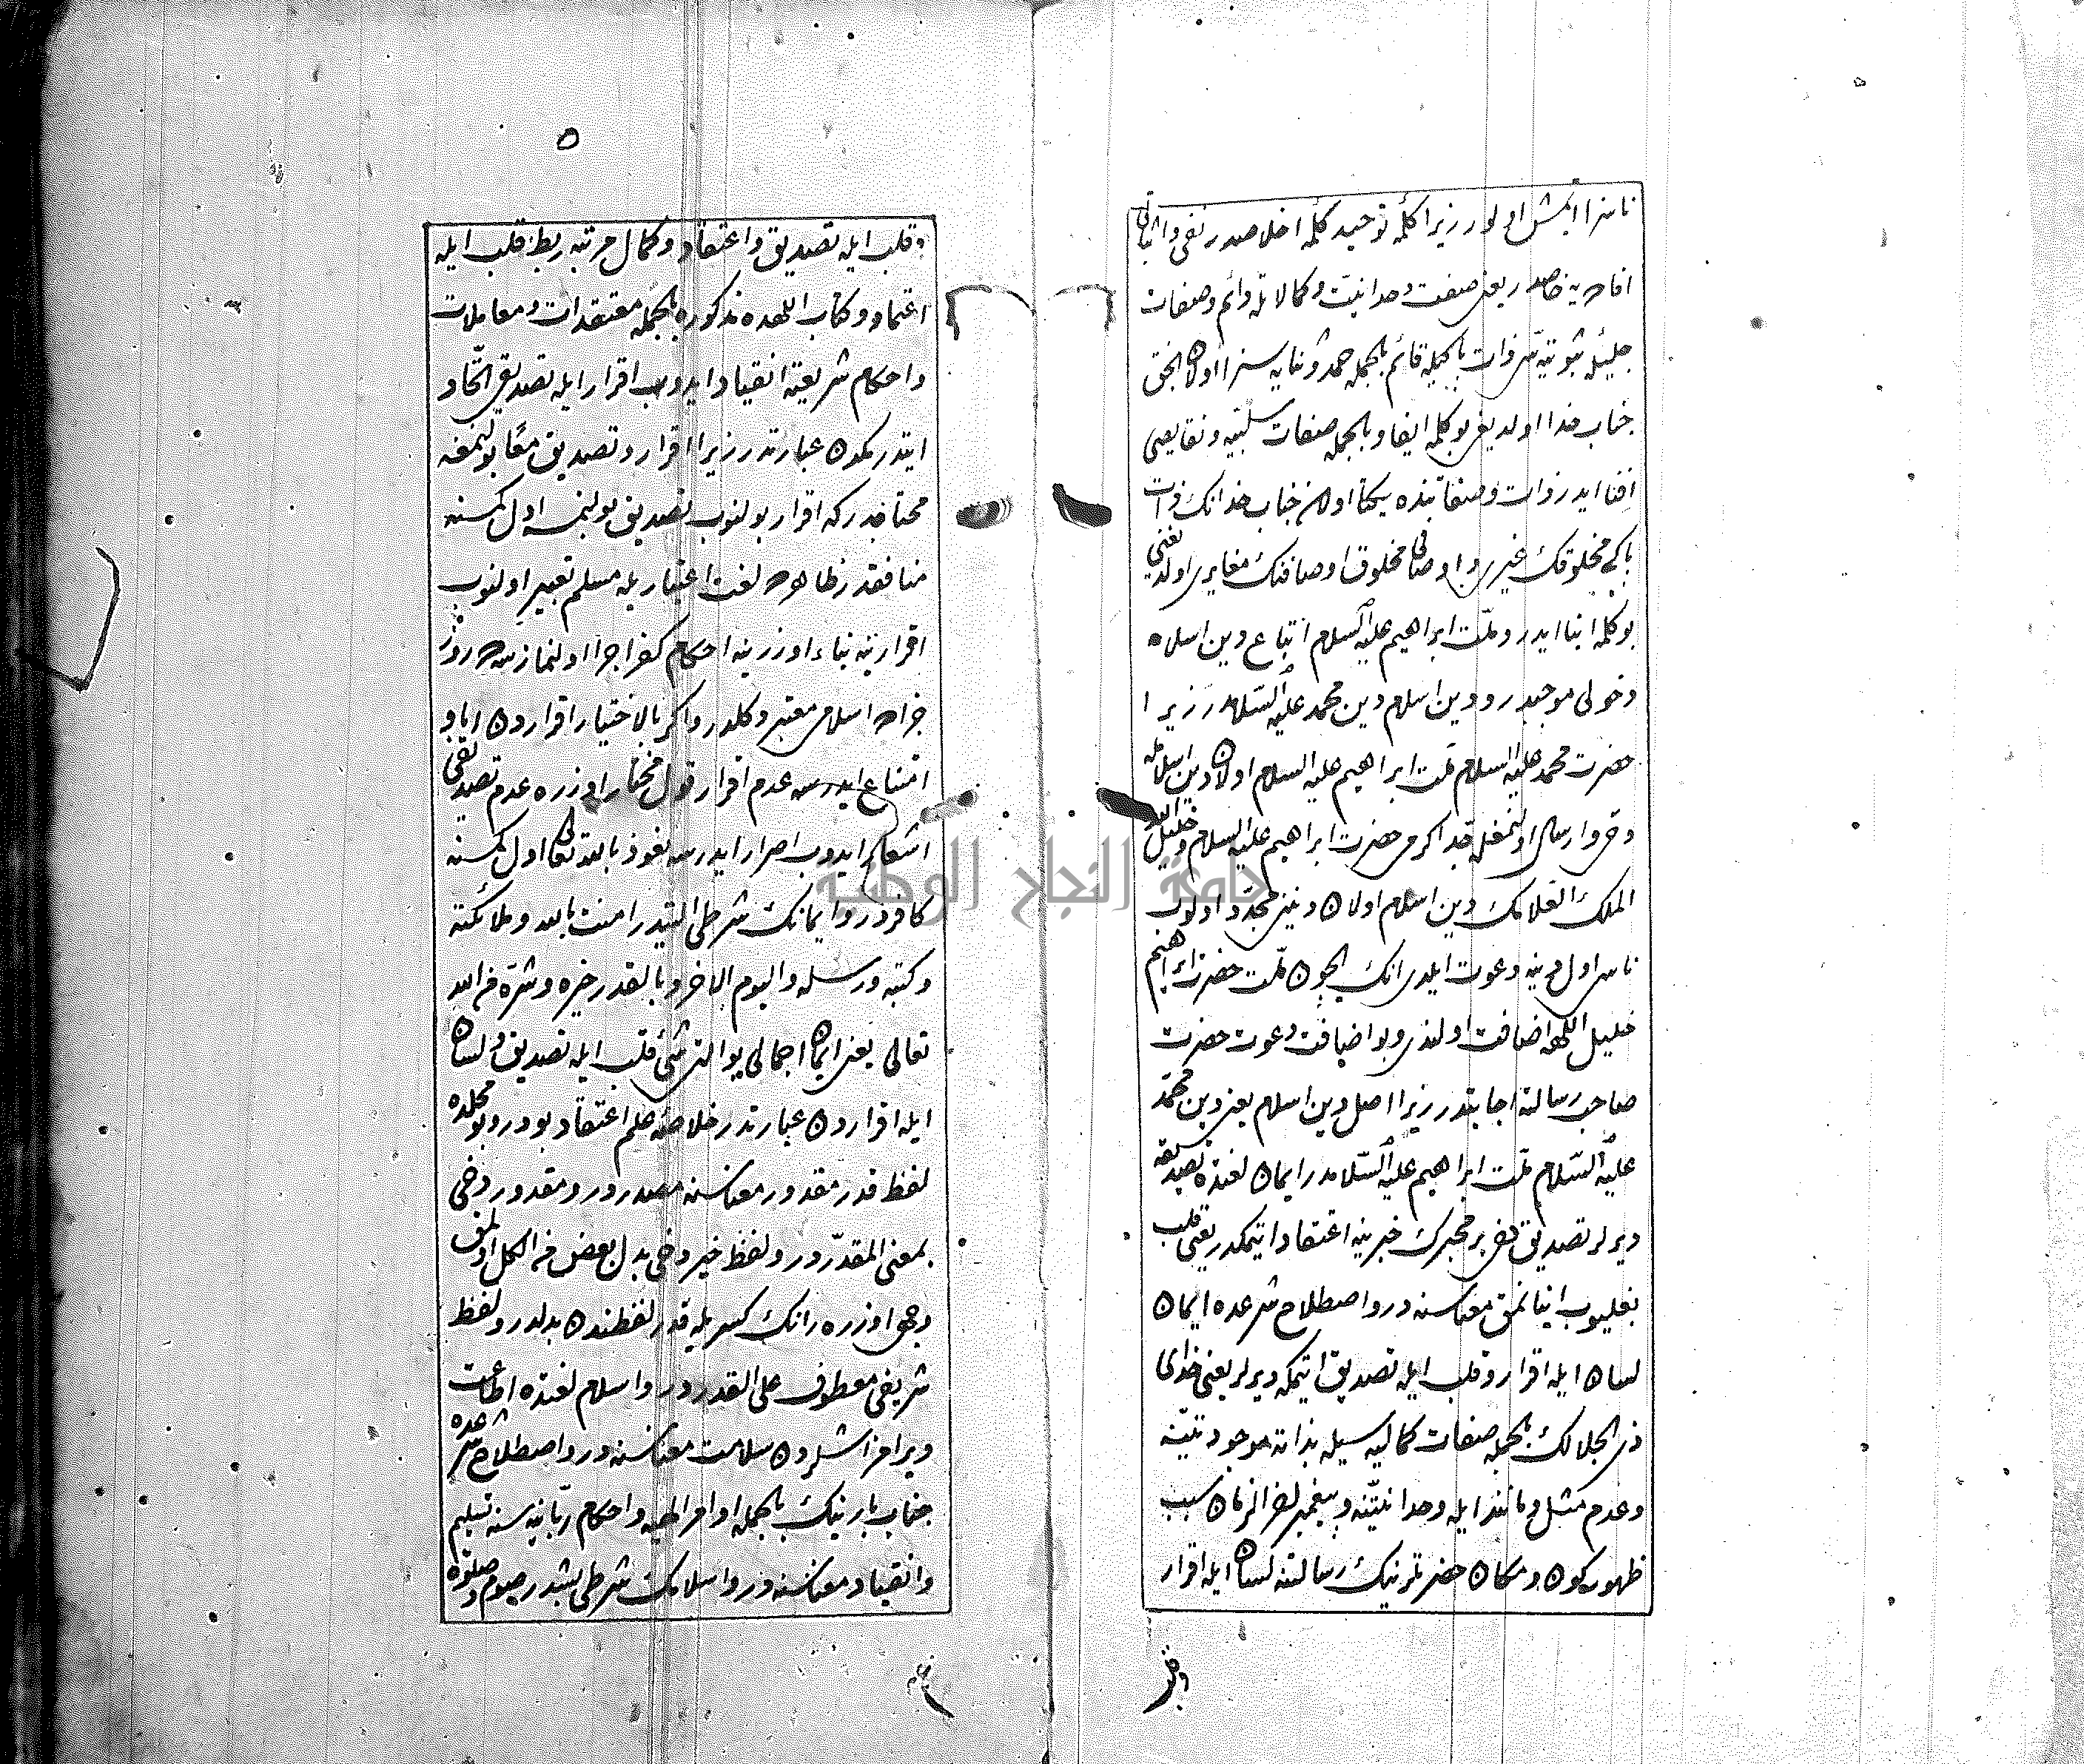 ناسزا ایتمش اولور زیرا كلمۀ توحید كلمۀ اخلاصدر نفی و اثباتی
افاده یه خاصدر یعنی صفت وحدانیت و كمالاتله دائم و صفات
جلیلۀ ثبوتیه سر ذات باكیله قائم بالجمله حمد و ثنایه سزا اولان الحق
جناب خدا اولدیغن بو كلمه ایفا و بالجمله صفات سلبیه و نقایصی
افنا ایدر ذات و صفاتنده یكتا اولان جناب خدانك ذات
پاكی مخلوقك غیری و اوصافی مخلوق اوصافنك مغایری اولدیغنی
بو كلمه انبا ایدر و ملت ابراهیم علیه السلام اتباع دین اسلامه
دخولی موجبدر و دین اسلام دین محمد علیه السلامدر زیرا
حضرت محمد علیه السلام ملت ابراهیم علیه السلام اولان دین اسلامله
و قروارسال اولنمغله جد اكرمی حضرت ابراهیم علیه السلام و خلیل الله
الملك العلامك دین اسلام اولان دینی مجدد اولوب
ناسی اول دینه دعوت ایلدی انك ایچون ملت حضرت ابراهیم
خلیل اللهه اضافت اولندی و بو اضافت دعوت حضرت
صاحب رسالته اجابتدر زیرا اصل دین اسلام یعنی دین محمد
علیه السلام ملت ابراهیم علیه السلامدر ایمان لغتده تصدیقه
دیرلر تصدیق یعنی بر مخبرك خبرینه اعتقاد ایتمكدر یعنی قلب
بغلیوب اینانمق معناسنه در و اصطلاح شرعده ایمان
لسان ایله اقرار و قلب ایله تصدیق ایتمكه دیرلر یعنی خدای
ذی الجلالك بالجمله صفات كمالیه سیله بذاته موجودیتنه
و عدم مثل و مانند ایله وحدانیتنه و پیغمبر اخر الزمان سبب
ظهور كون و مكان حضرتلرینك رسالتنه لسان ایله اقرار
وقلب
٥
وقلب ایله تصدیق و اعتقاد و كمال مرتبه ربط قلب ایله
اعتماد و كتاب اللهده مذكوره بالجمله معتقدات و معاملات
و احكام شریعته انقیاد ایدوب اقرار ایله تصدیقی اتحاد
ایتدرمكدن عبارتدر زیرا اقرار و تصدیق معا بولنمغه
محتاجدر كه اقرار بولنوب تصدیق بولنمسه اول كمسنه
منافقدر ظاهرده لغت اعتباریله مسلم تعبیر اولنوب
اقرارینه بناء اوزرینه احكام كفر اجرا اولنمازسه ده روز
جزاده اسلامی معتبر دكلدر و اكر بالاختیار اقراردن ابا و
امتناع ایدرسه عدم اقرار قول مختار اوزره عدم تصدیقی
اشعار ایدوب اصرار ایدرسه نعوذ بالله تعالی اول كمسنه
كافردر و ایمانك شرطی التیدر امنت بالله و ملائكته
و كتبه و رسله و الیوم الاخر و بالقدر خیره و شره من الله
تعالی یعنی ایمان اجمالی بو التی شیئی قلب ایله تصدیق و لسان
ایله اقراردن عبارتدر خلاصۀ علم اعتقاد بودر و بو محلده
لفظ قدر مقدور معناسنه مصدردر و مقدور دخی
بمعنی المقدردر و لفظ خیر دخی بدل بعض من الكل اولمق
وجهی اوزره رانك كسریله قدر لفظندن بدلدر و لفظ
شریفی معطوف علی القدردر و اسلام لغتده اطاعت
دیر امراشلردن سلامت معناسنه در و اصطلاح شرعده
جناب بارینك بالجمله اوامر الهیه و احكام ربانیه سنه تسلیم
و انقیاد معناسنه در و اسلامك شرطی بشدر صوم و صلوة